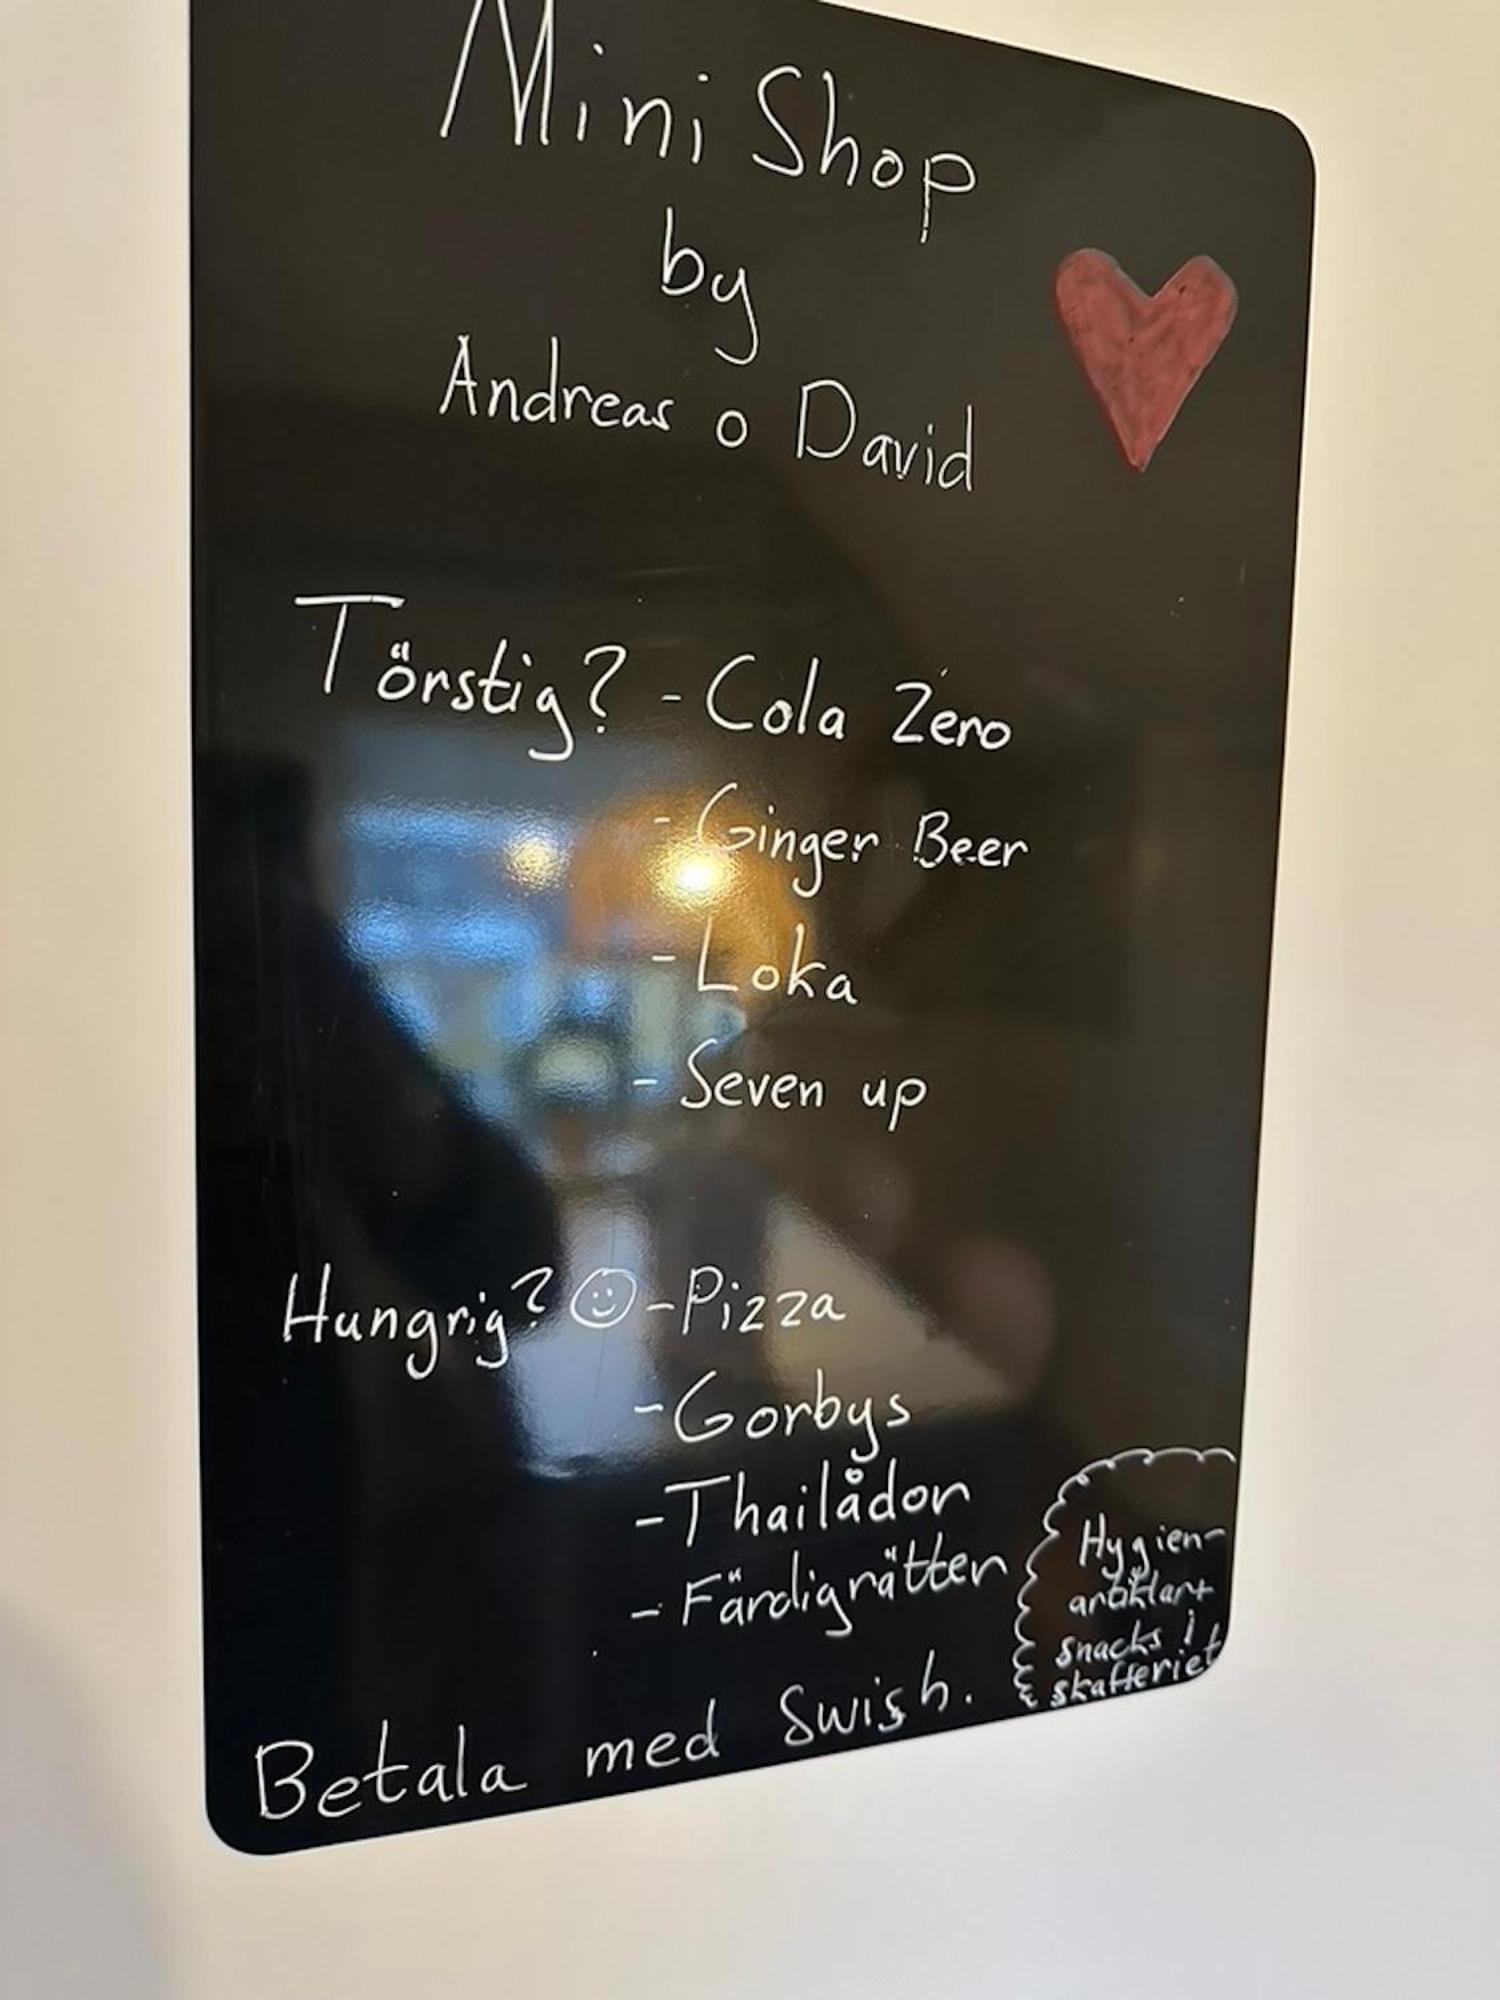 Mini Shop
by
Andreas o David
Törstig? - Cola Zero
- Ginger Beer
- Loka
- Seven up
Hungrig? - Pizza
- Gorbys
- Thailådor
- Färdigrätter
Hygien-
artiklar +
snacks i
skafferiet
Betala med Swish.